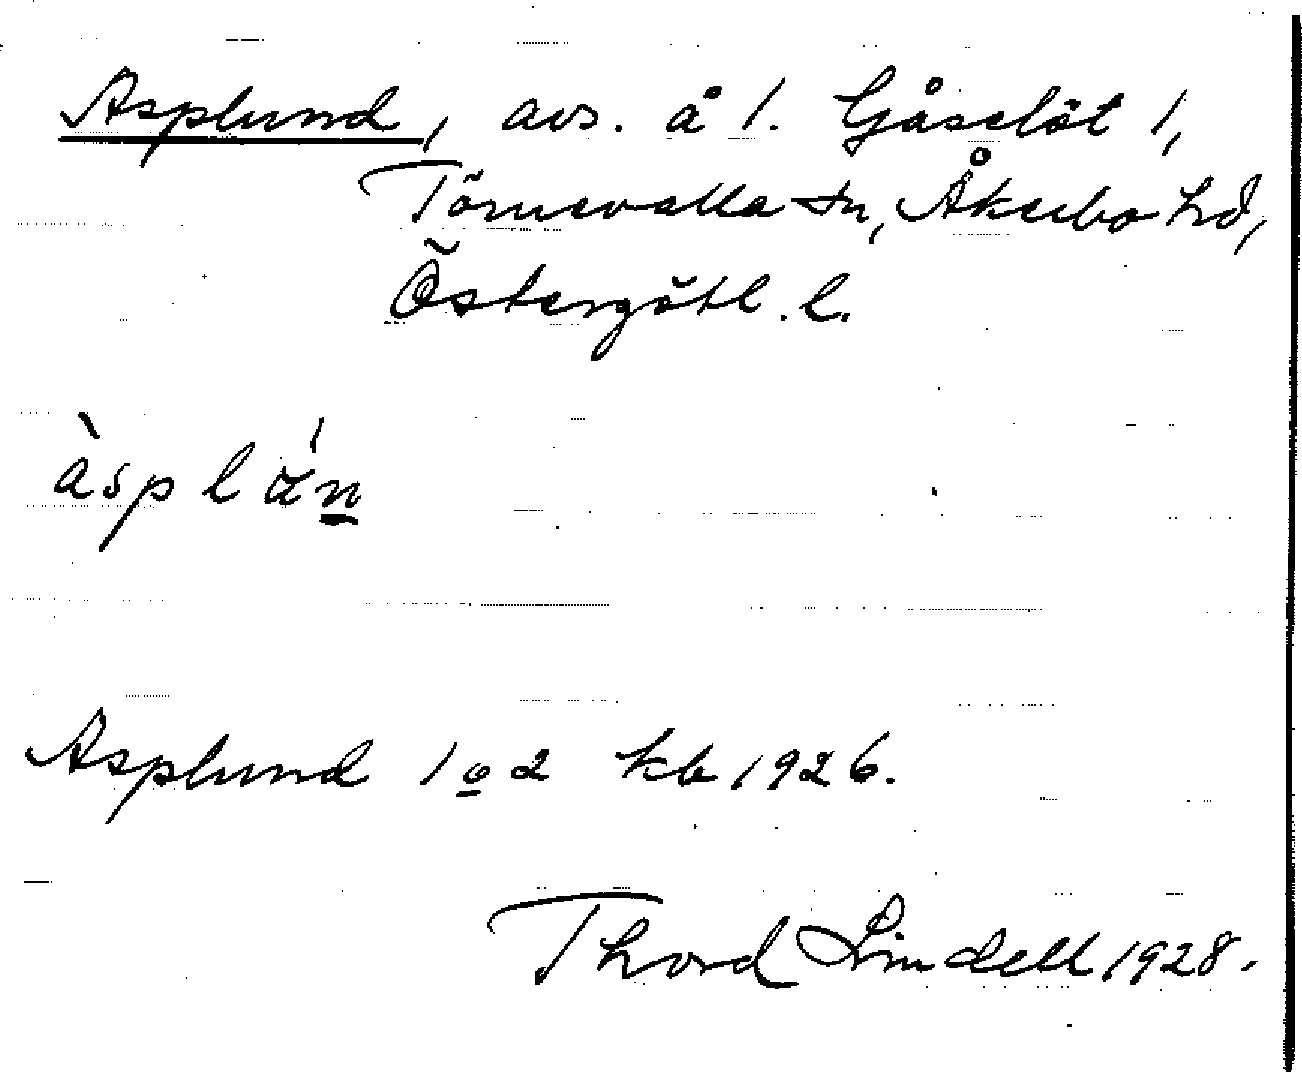 Asplund, avs. å 1. Gåselöt 1,
Törnevalla sn, Åkerbo hd,
Östergötl. l.
àsp l á̈n
Asplund 1 o 2 kb 1926.
Thord Lindell 1928.